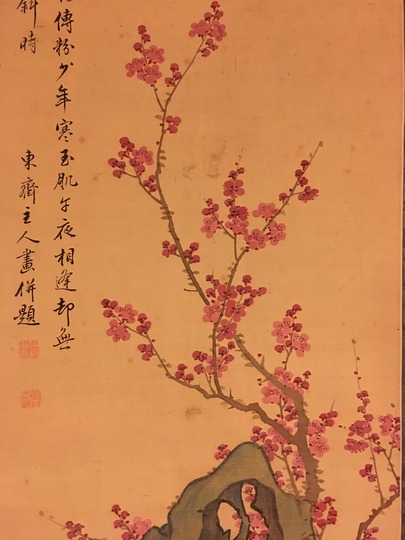 傳粉少年寒玉肌午夜相逢却無
斜時
東齋主人畫併題